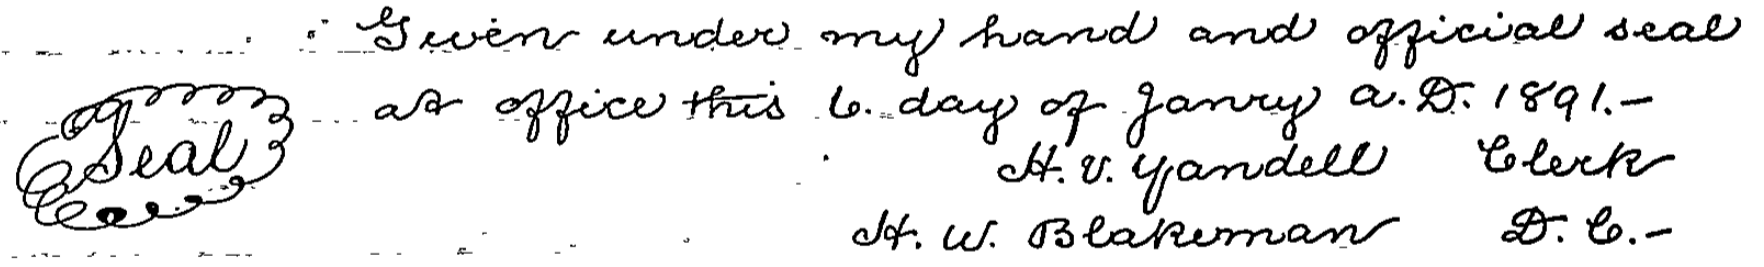 Given under my hand and official seal
at office this 6. day of Janry A.D. 1891.-
Seal
H. V. Yandell Clerk
H. W. Blakeman D. C.-